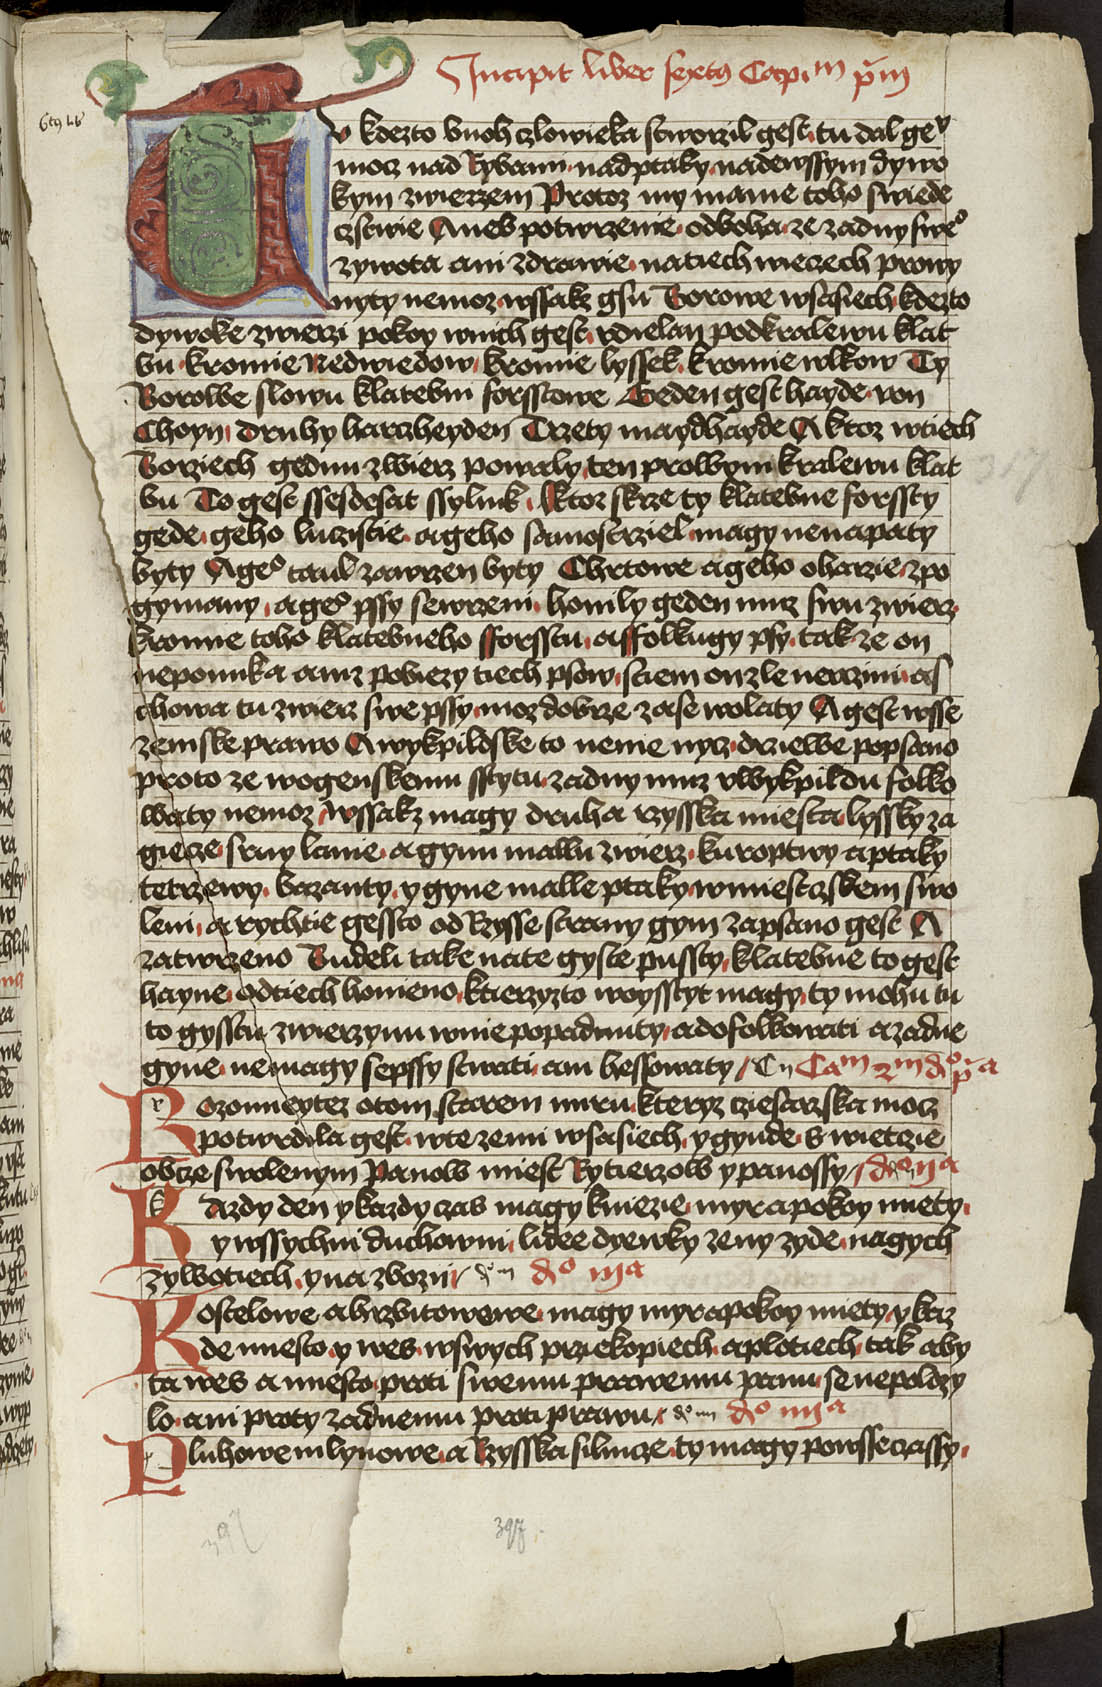 Incipit liber sextus Capim pim
6tus lib
Tu kdezto buoh czlowieka stworzil gest tu dal gev
mocz nad Rybami nadptaky nadewssym dywo
kym zwierzem Protoz my mame toho swiede
cztwie Aneb potwrzenie odboha ze zadny sweo
zywota ani zdrawie natiech wieczech prowy
nyty nemoz wssakz gsu Borowe wsasiech kdezto
dywoke zwierzi pokoy wnich gest vdielan podkralewu klat
bu kromie Nedwiedow kromie lyssek kromie wlkow Ty
Borowe slowu klatebni forsstowe Geden gest hayde von
Choyn druhy harczheyden Trzety maydhayde A ktoz wtiech
Borziech gedinu zwierz powaly ten prowym kralewu klat
bu To gest ssesdesat ssylink Ktoz skrze ty klatebne forssty
gede geho lucistie ageho samostrziel magy nenapaty
byty Ageo taul zawrzen byty Chrtowe ageho oharzie zpo
gymany ageo pssy sewrzeni honily geden muz swu zwierz
kromie toho klatebneho fforsstu affolkugy psy tak ze on
neponuka amz pobiezy tiech psow sciem onzle neuczini as
chowa tu zwierz swe pssy moz dobrze zase wolaty A gest wsse
zemske prawo A wykpildske to nenie nycz drziewe popsano
proto ze wogenskemu sstytu zadny muz vwykpildu folko
waty nemoz wssakz magy druha rzysska miesta lyssky za
giecze srny lanie agynu mallu zwierz kuroptwy aptaky
tetrzewy bazanty y gyne malle ptaky wmiestczskem swo
leni a rychtie gessto od Rzysse strany gym zapsano gest A
zatwrzeno Budeli take nate gyste pussty klatebne to gest
hayne odtiech homeno kterzyzto woysstyt magy ty mohu tu
to gysstu zwierzynu wnie popadnuty adofolkowati azadne
gyne nemagy sepssy stwati ani hessowaty Cij Cam 2m do pa
Rozomieytez otom starem miru kteryz cziesarzska mocz
potwrdila gest wte zemi wsasiech y gynde s wietczie
obcze swolenym Panow miest Rytierzow y panossy do ija
Kazdy den y kazdy czas magy kniezie myr apokoy miety
y wssychni duchowni lidee dyewky zeny zyde nagych
zywotiech y na zbozii do iija
Kostelowe ahrzbitowewe magy myr apokoy miety y ktz
de miesto y wes wswych prziekopiech aplotiech tak aby
ta wes a miesto proti swemu prawemu panu senepoldzy
lo ani proty zadnemu proti prawu do iiija
Pluhowe mlynowe a Rzysska silnicze ty magy powsseczassy
397
397